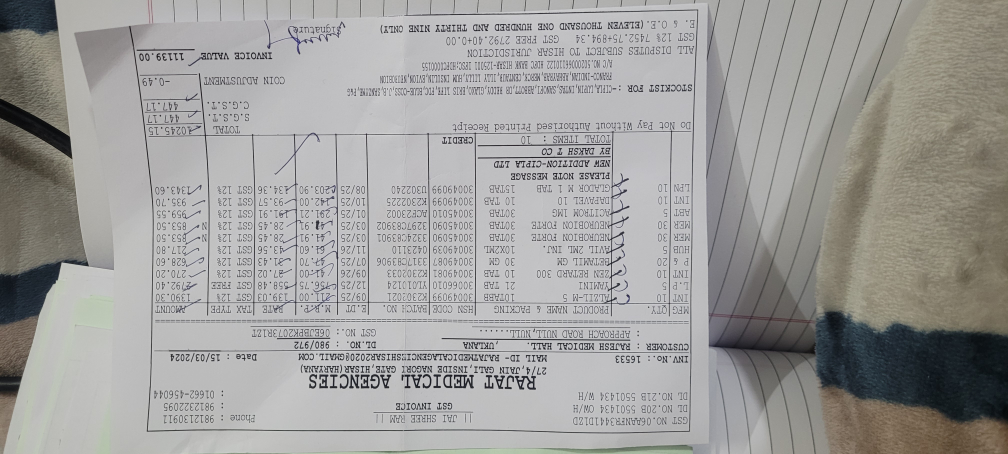 || JAI SHREE RAM ||
GST INVOICE
GST NO.06AANFR3441D1ZD
DL NO.20B 5501434 OW/H
DL NO.21B 5501434 W/H
Phone : 9812130911
: 9812322095
: 01662-456044
RAJAT MEDICAL AGENCIES
27/4,JAIN GALI,INSIDE NAGORI GATE,HISAR(HARYANA)
MAIL ID- RAJATMEDICALAGENCIESHISAR2020@GMAIL.COM
INV No.: 16533 Date : 15/03/2024
CUSTOMER : RAJESH MEDICAL HALL. ,UKLANA DL.NO.: 980/972
: APPROACH ROAD NULL,NULL....... GST NO.: 06EJBPK2073R1ZT
MFG QTY. PRODUCT NAME & PACKING HSN CODE BATCH NO. E.DT M.R.P. RATE TAX TYPE AMOUNT
INT 10 ALZIL-M 5 10TAB 30049099 KE230221 09/25 211.00 139.03 GST 12% 1390.30
L.P 5 YAMINI 21 TAB 30066010 YL010124 12/25 756.75 558.48 GST FREE 2792.40
INT 10 ZEN RETARD 300 10 TAB 30049081 KE232033 09/26 41.00 27.02 GST 12% 270.20
P & 20 BETAMIL GM 30 GM 30049087 3317C8J906 07/25 47.70 31.43 GST 12% 628.60
HUB 5 AVIL 2ML INJ. 10X2ML 30049039 0423110 11/26 61.60 43.56 GST 12% 217.80
MER 30 NEUROBION FORTE 30TAB 30045039 3324C8J901 03/25 41.91 28.45 GST 12% N 853.50
MER 30 NEUROBION FORTE 30TAB 30045039 3297C8K902 03/25 41.91 28.45 GST 12% N 853.50
ABT 5 ACITROM 1MG 30TAB 30045010 ACF23002 01/25 291.21 191.91 GST 12% 959.55
INT 10 DAVAPEL 10 10 TAB 30049099 KE2302225 10/25 142.00 93.57 GST 12% 935.70
LPN 10 GLADOR M 1 TAB 15TAB 30049099 U302240 08/25 203.90 134.36 GST 12% 1343.60
PLEASE NOTE MESSAGE
NEW ADDITION-CIPLA LTD
BY DAKSH T CO
TOTAL ITEMS : 10 CREDIT
Do Not Pay Without Authorised Printed Receipt
TOTAL 10245.15
S.G.S.T. 447.17
C.G.S.T. 447.17
COIN ADJUSTMENT -0.49
INVOICE VALUE 11139.00
A/C NO.50200061106122 HDFC BANK HISAR-125001 IFSC:HDFC0000155
ALL DISPUTES SUBJECT TO HISAR JURISDICTION
GST 12% 7452.75+894.34 GST FREE 2792.40+0.00
E. & O.E.(ELEVEN THOUSAND ONE HUNDRED AND THIRTY NINE ONLY)
Signature